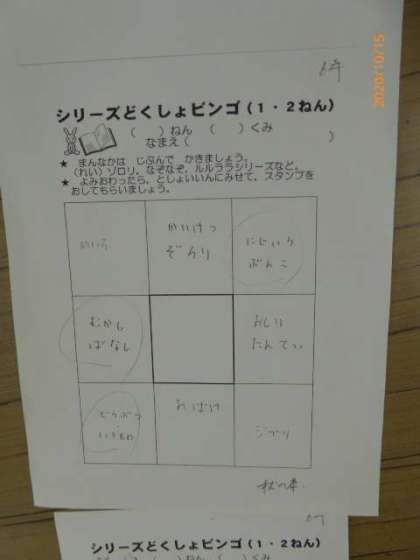 2020/10/15
シリーズどくしょビンゴ(1・2ねん)
(　　)ねん　(　　)くみ
なまえ(　　　　　　　　)
★ まんなかは じぶんで かきましょう。
(れい) ゾロリ、なぞなぞ、ルルララシリーズなど。
★ よみおわったら、としょいいんにみせて、スタンプを
おしてもらいましょう。
かいけつ
ぞろり
にじいろ
ぶんこ
むかし
ばなし
おしり
たんてい
どうぶつ
いきもの
おばけ
ジブリ
シリーズどくしょビンゴ(1・2ねん)
(　　)ねん　(　　)くみ